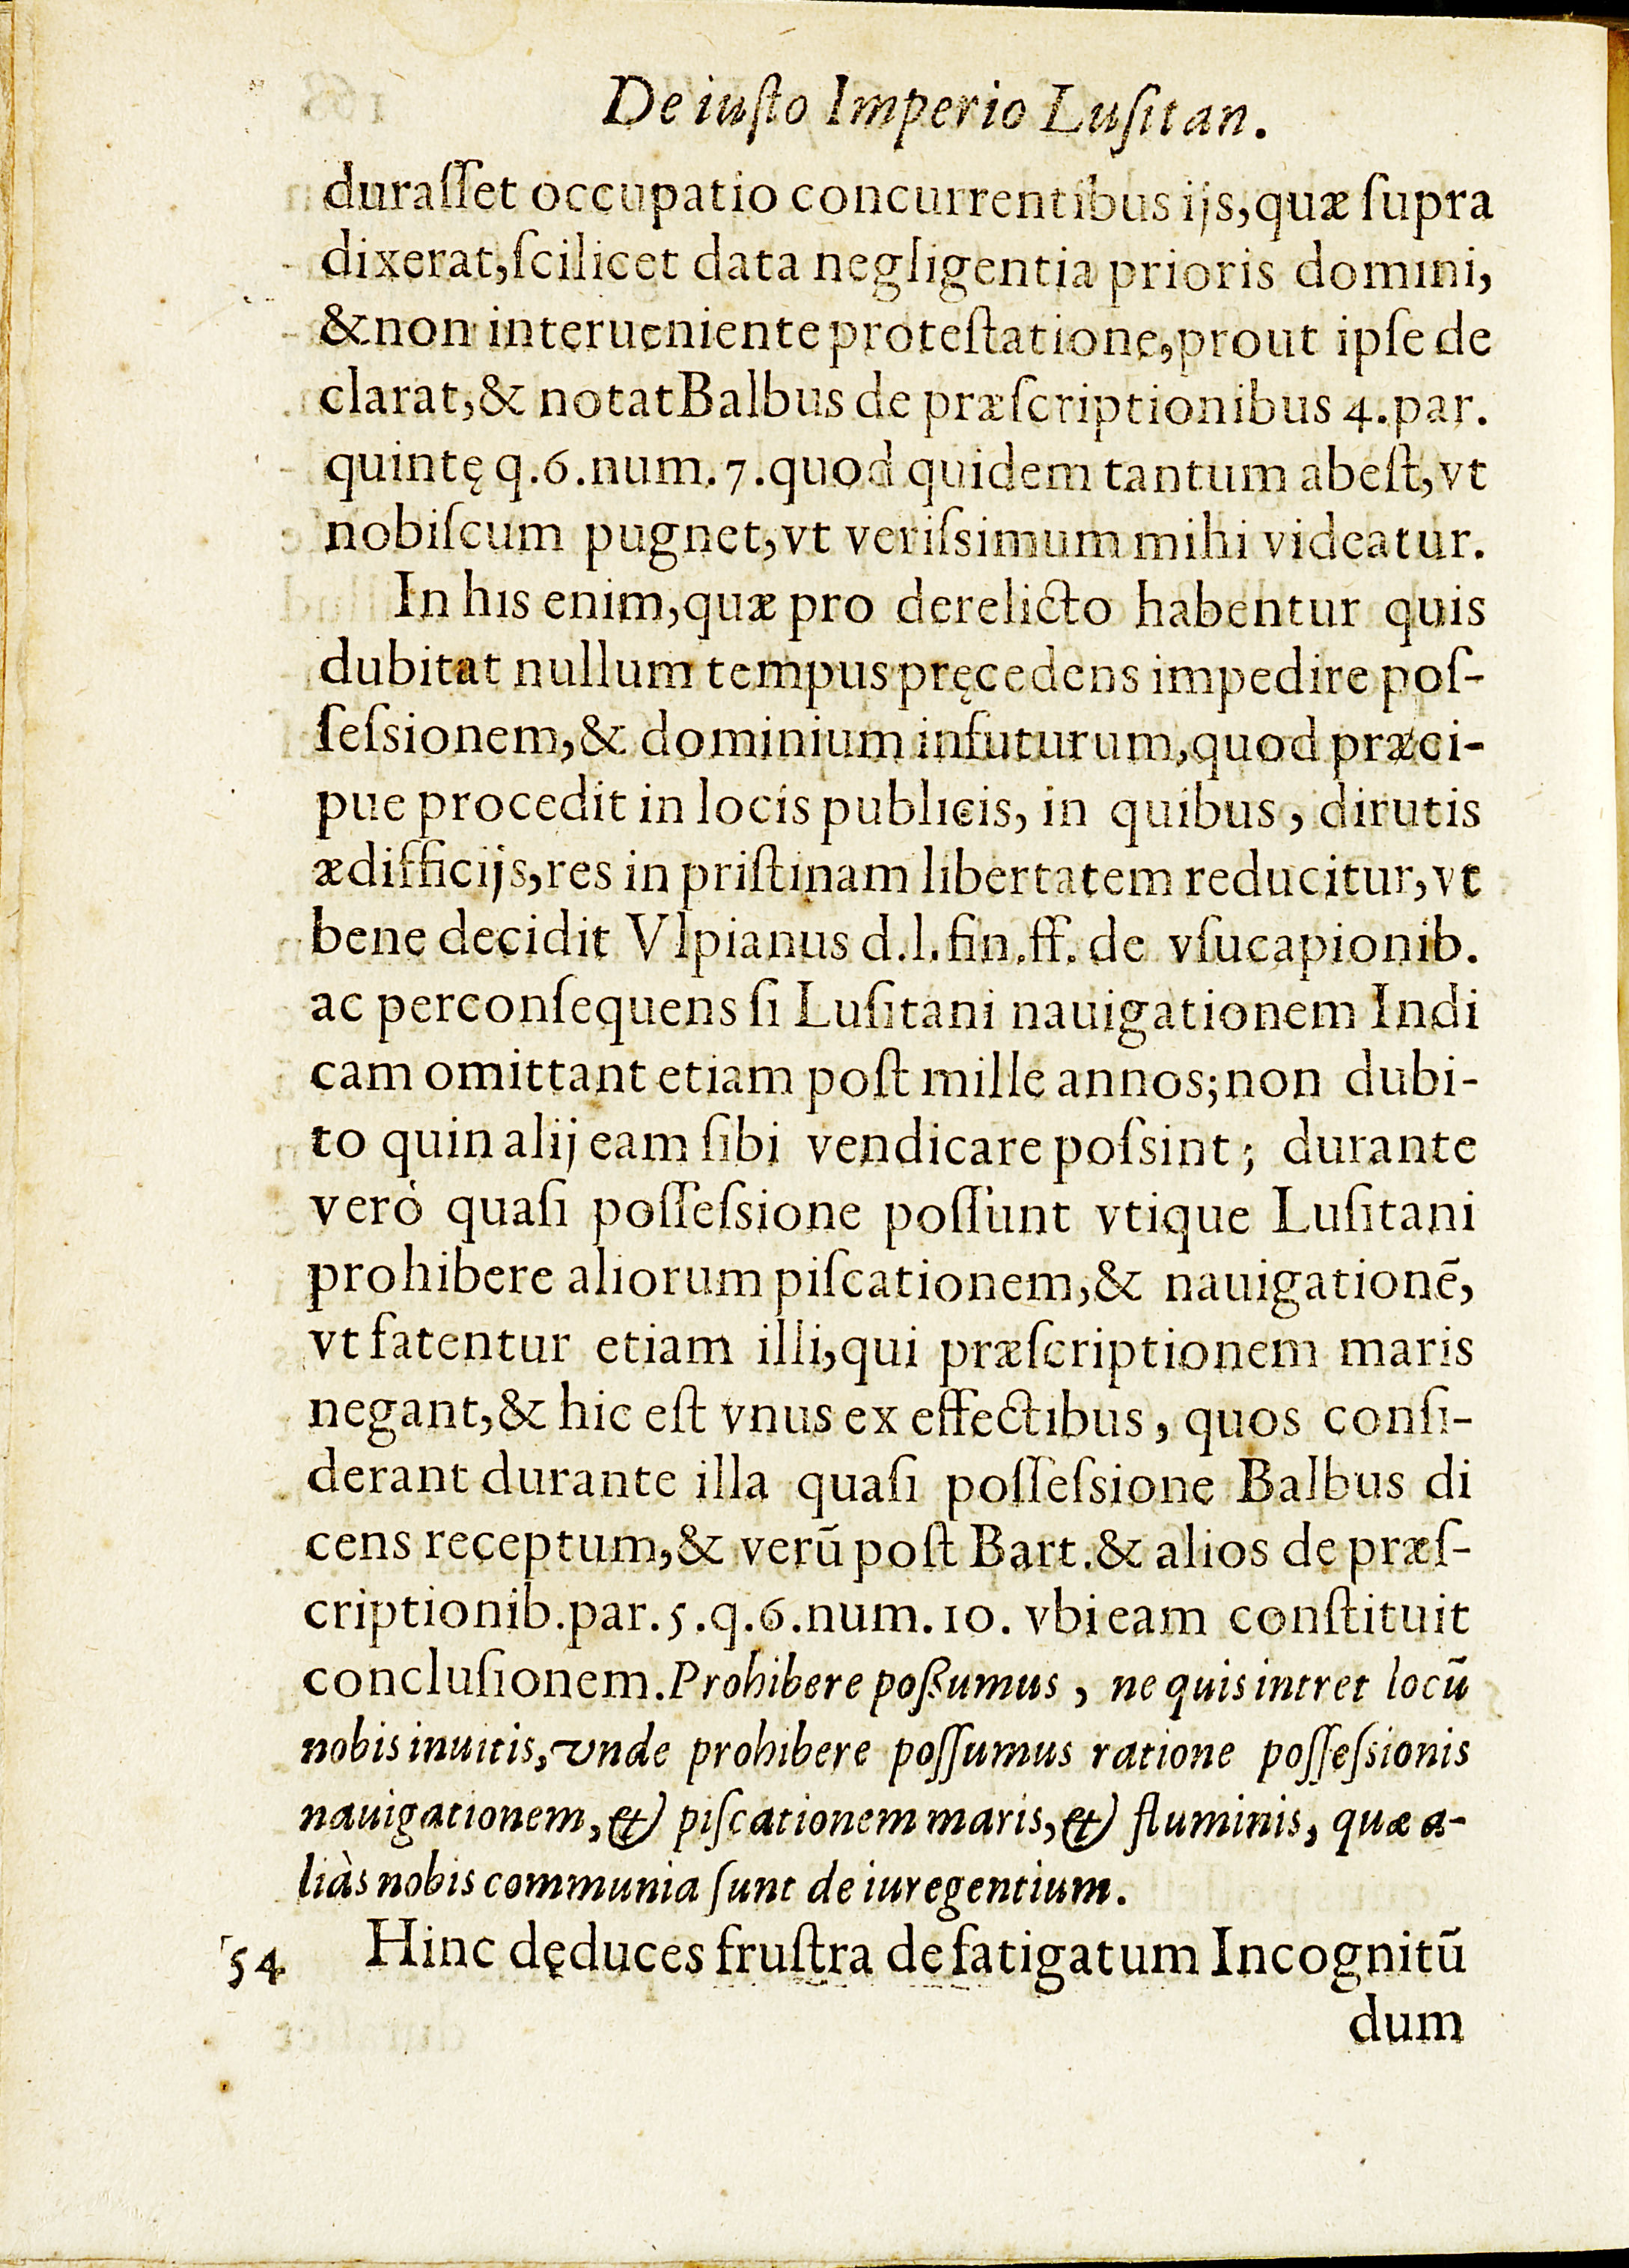 De iuſto Imperio Luſitan.
duraſſet occupatio concurrentibus ijs, quæ ſupra
dixerat, ſcilicet data negligentia prioris domini,
& non interueniente proteſtatione, prout ipſe de
clarat, & notat Balbus de præſcriptionibus 4. par.
quintę q. 6. num. 7. quod quidem tantum abeſt, vt
nobiſcum pugnet, vt veriſsimum mihi videatur.
In his enim, quæ pro derelicto habentur quis
dubitat nullum tempus pręcedens impedire poſ-
ſeſsionem, & dominium infuturum, quod præci-
pue procedit in locis publicis, in quibus, dirutis
ædifficijs, res in priſtinam libertatem reducitur, vt
bene decidit Vlpianus d. l. fin. ff. de vſucapionib.
ac perconſequens ſi Luſitani nauigationem Indi
cam omittant etiam poſt mille annos; non dubi-
to quin alij eam ſibi vendicare poſsint; durante
verò quaſi poſſeſsione poſſunt vtique Luſitani
prohibere aliorum piſcationem, & nauigationē,
vt fatentur etiam illi, qui præſcriptionem maris
negant, & hic eſt vnus ex effectibus, quos conſi-
derant durante illa quaſi poſſeſsione Balbus di
cens receptum, & verū poſt Bart. & alios de præſ-
criptionib. par. 5. q. 6. num. 10. vbi eam conſtituit
concluſionem. Prohibere poßumus, ne quis intret locū
nobis inuitis, vnde prohibere poſſumus ratione poſſeſsionis
nauigationem, & piſcationem maris, & fluminis, quæ a-
liàs nobis communia ſunt de iure gentium.
54 Hinc dęduces fruſtra defatigatum Incognitū
dum